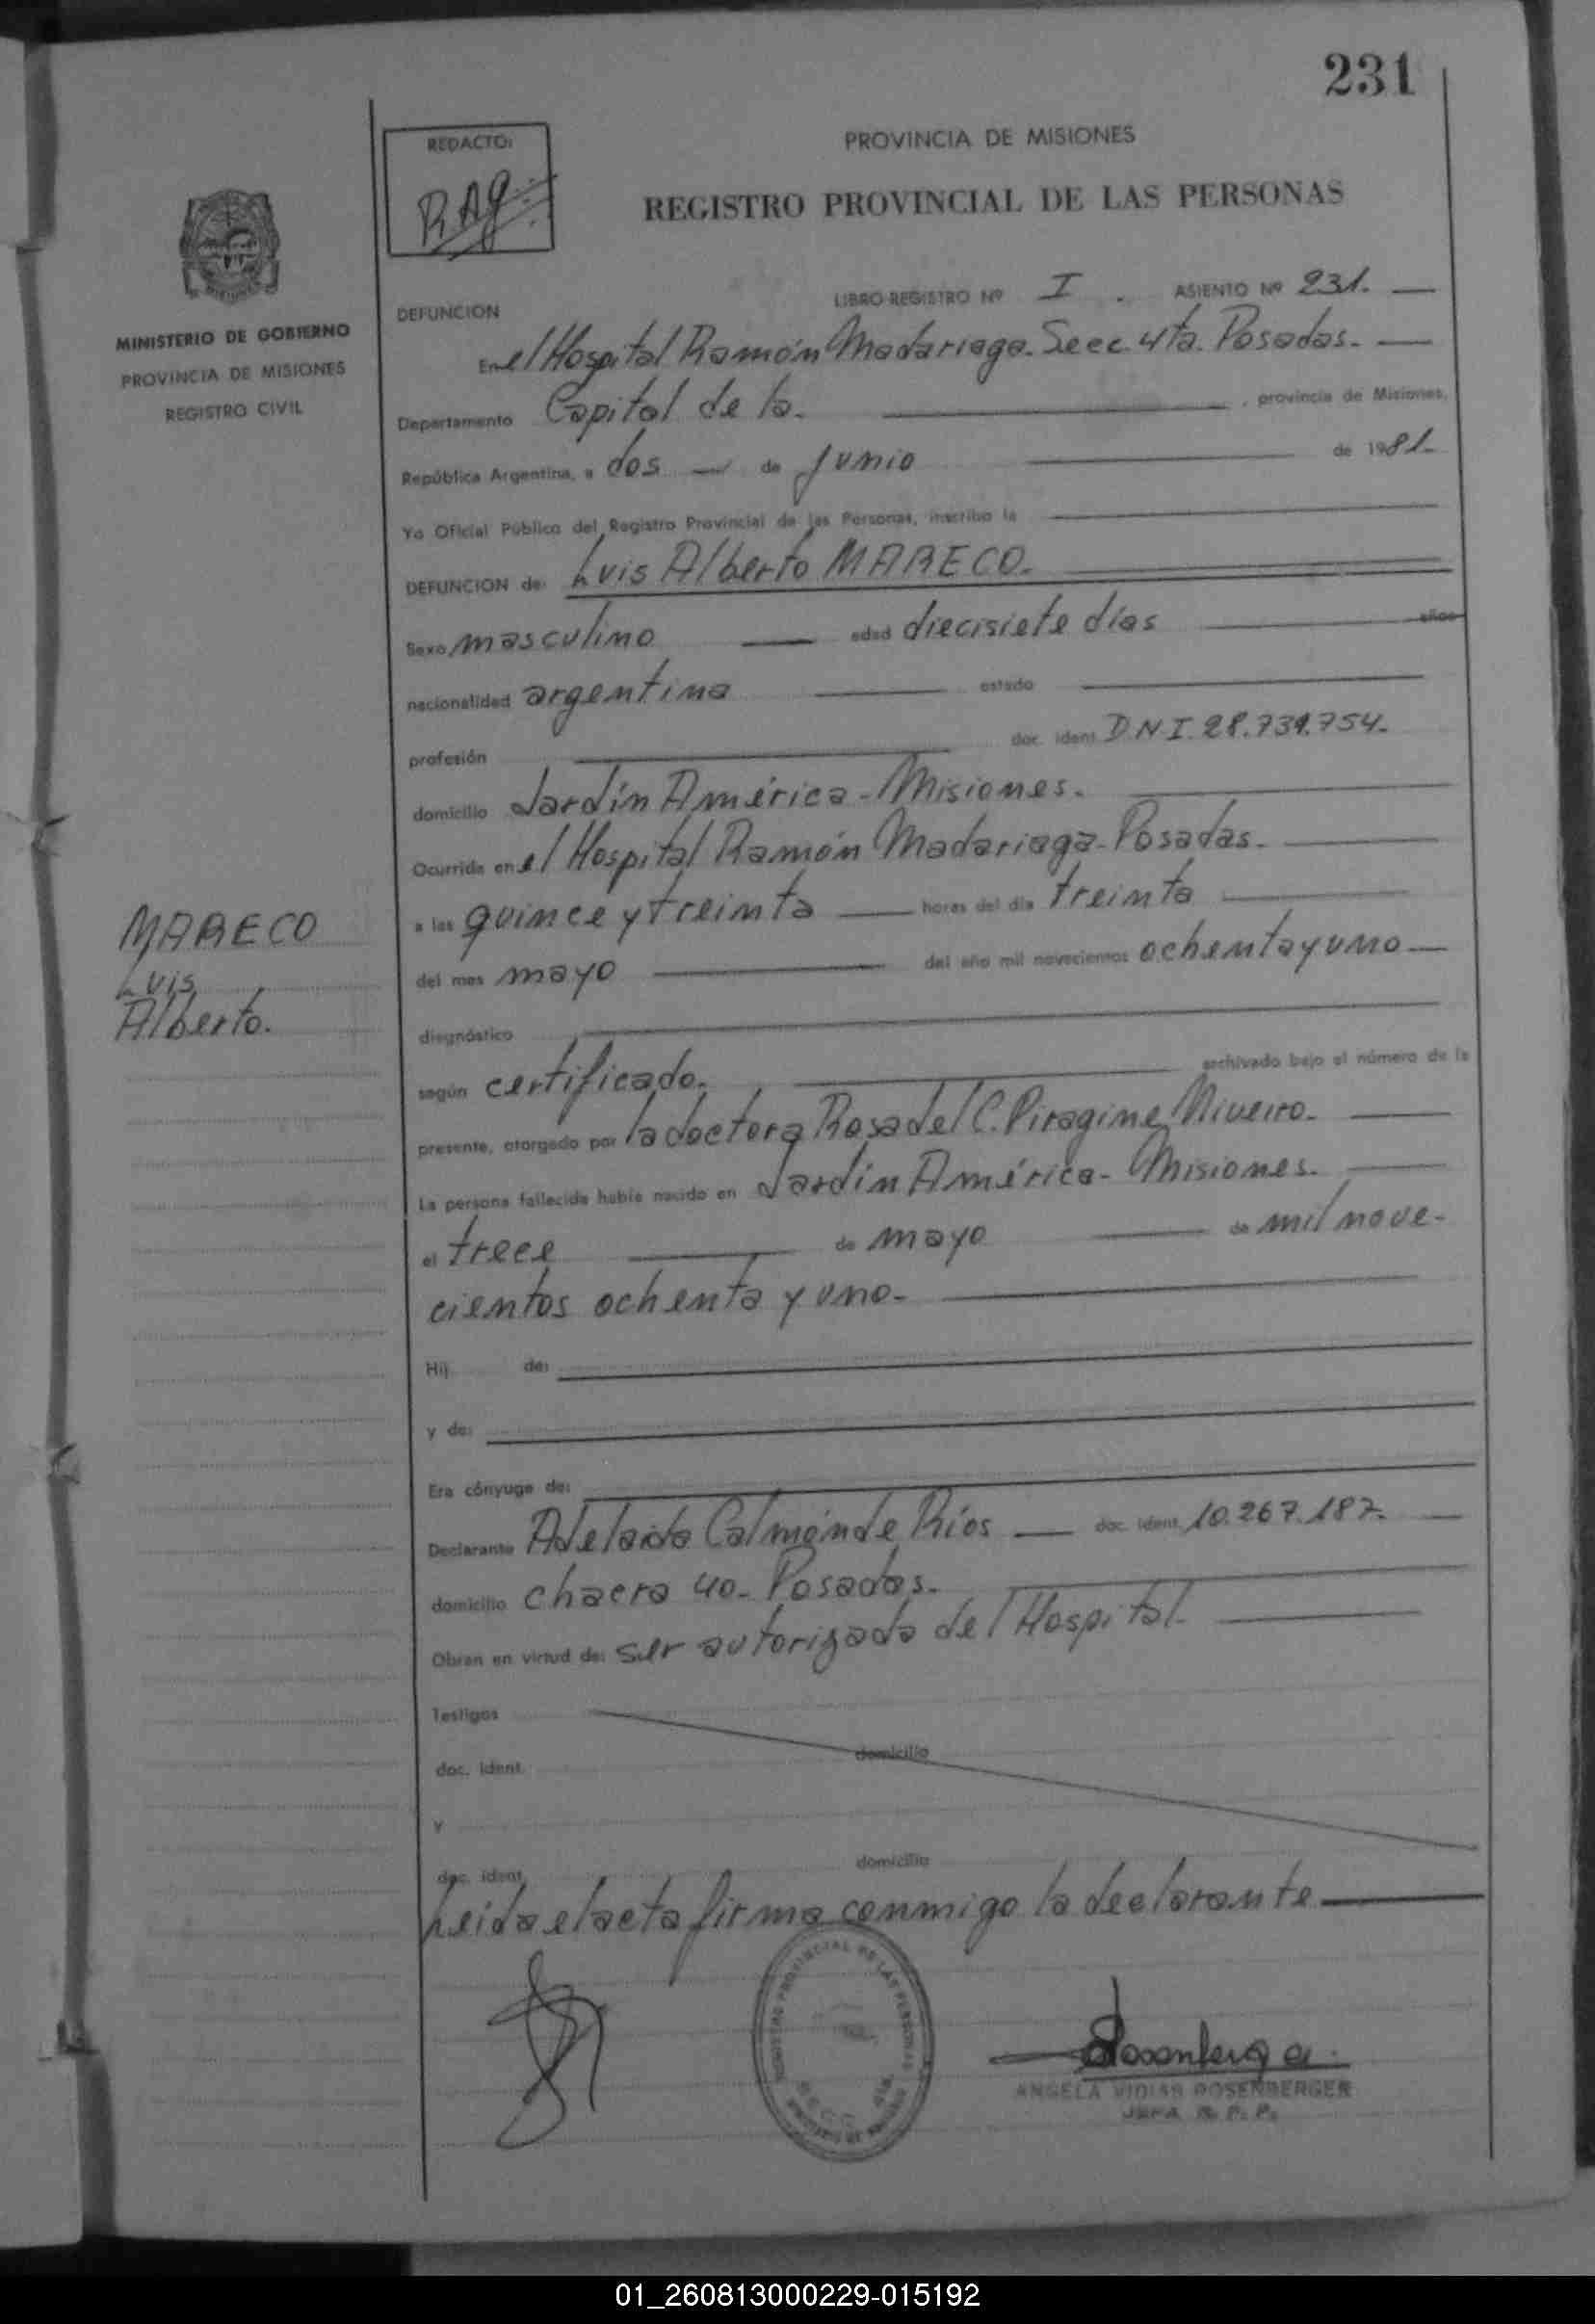 231
REDACTO:
RAg
PROVINCIA DE MISIONES
REGISTRO PROVINCIAL DE LAS PERSONAS
MINISTERIO DE GOBIERNO
PROVINCIA DE MISIONES
REGISTRO CIVIL
MARECO
Luis
Alberto.
LIBRO-REGISTRO Nº I. ASIENTO Nº 231.
DEFUNCION
En el Hospital Ramón Madariaga. Secc. 4ta. Posadas.
Departamento Capital de la. , provincia de Misiones,
República Argentina, a dos de Junio de 1981.
Yo Oficial Público del Registro Provincial de las Personas, inscribo la
DEFUNCION de: Luis Alberto MARECO.
Sexo masculino edad diecisiete días años
nacionalidad argentina estado
profesión doc. ident. D.N.I. 28.739.754.
domicilio Jardín América - Misiones.
Ocurrida en el Hospital Ramón Madariaga - Posadas.
a las quince y treinta horas del día treinta
del mes mayo del año mil novecientos ochenta y uno
diagnóstico
según certificado. archivado bajo el número de la
presente, otorgado por la doctora Rosa del C. Piragine Niveiro.
La persona fallecida había nacido en Jardín América - Misiones.
el trece de mayo de mil nove-
cientos ochenta y uno.
Hij de:
y de:
Era cónyuge de:
Declarante Adelaida Calmónde Ríos doc. ident. 10.267.187.
domicilio chacra 40. Posadas.
Obran en virtud de: ser autorizada del Hospital.
Testigos
doc. ident. domicilio
y
doc. ident. domicilio
Leida el acta firma conmigo la declarante
REGISTRO PROVINCIAL DE LAS PERSONAS
ANGELA ROSENBERGER
JEFA R. P. P.
01_260813000229-015192